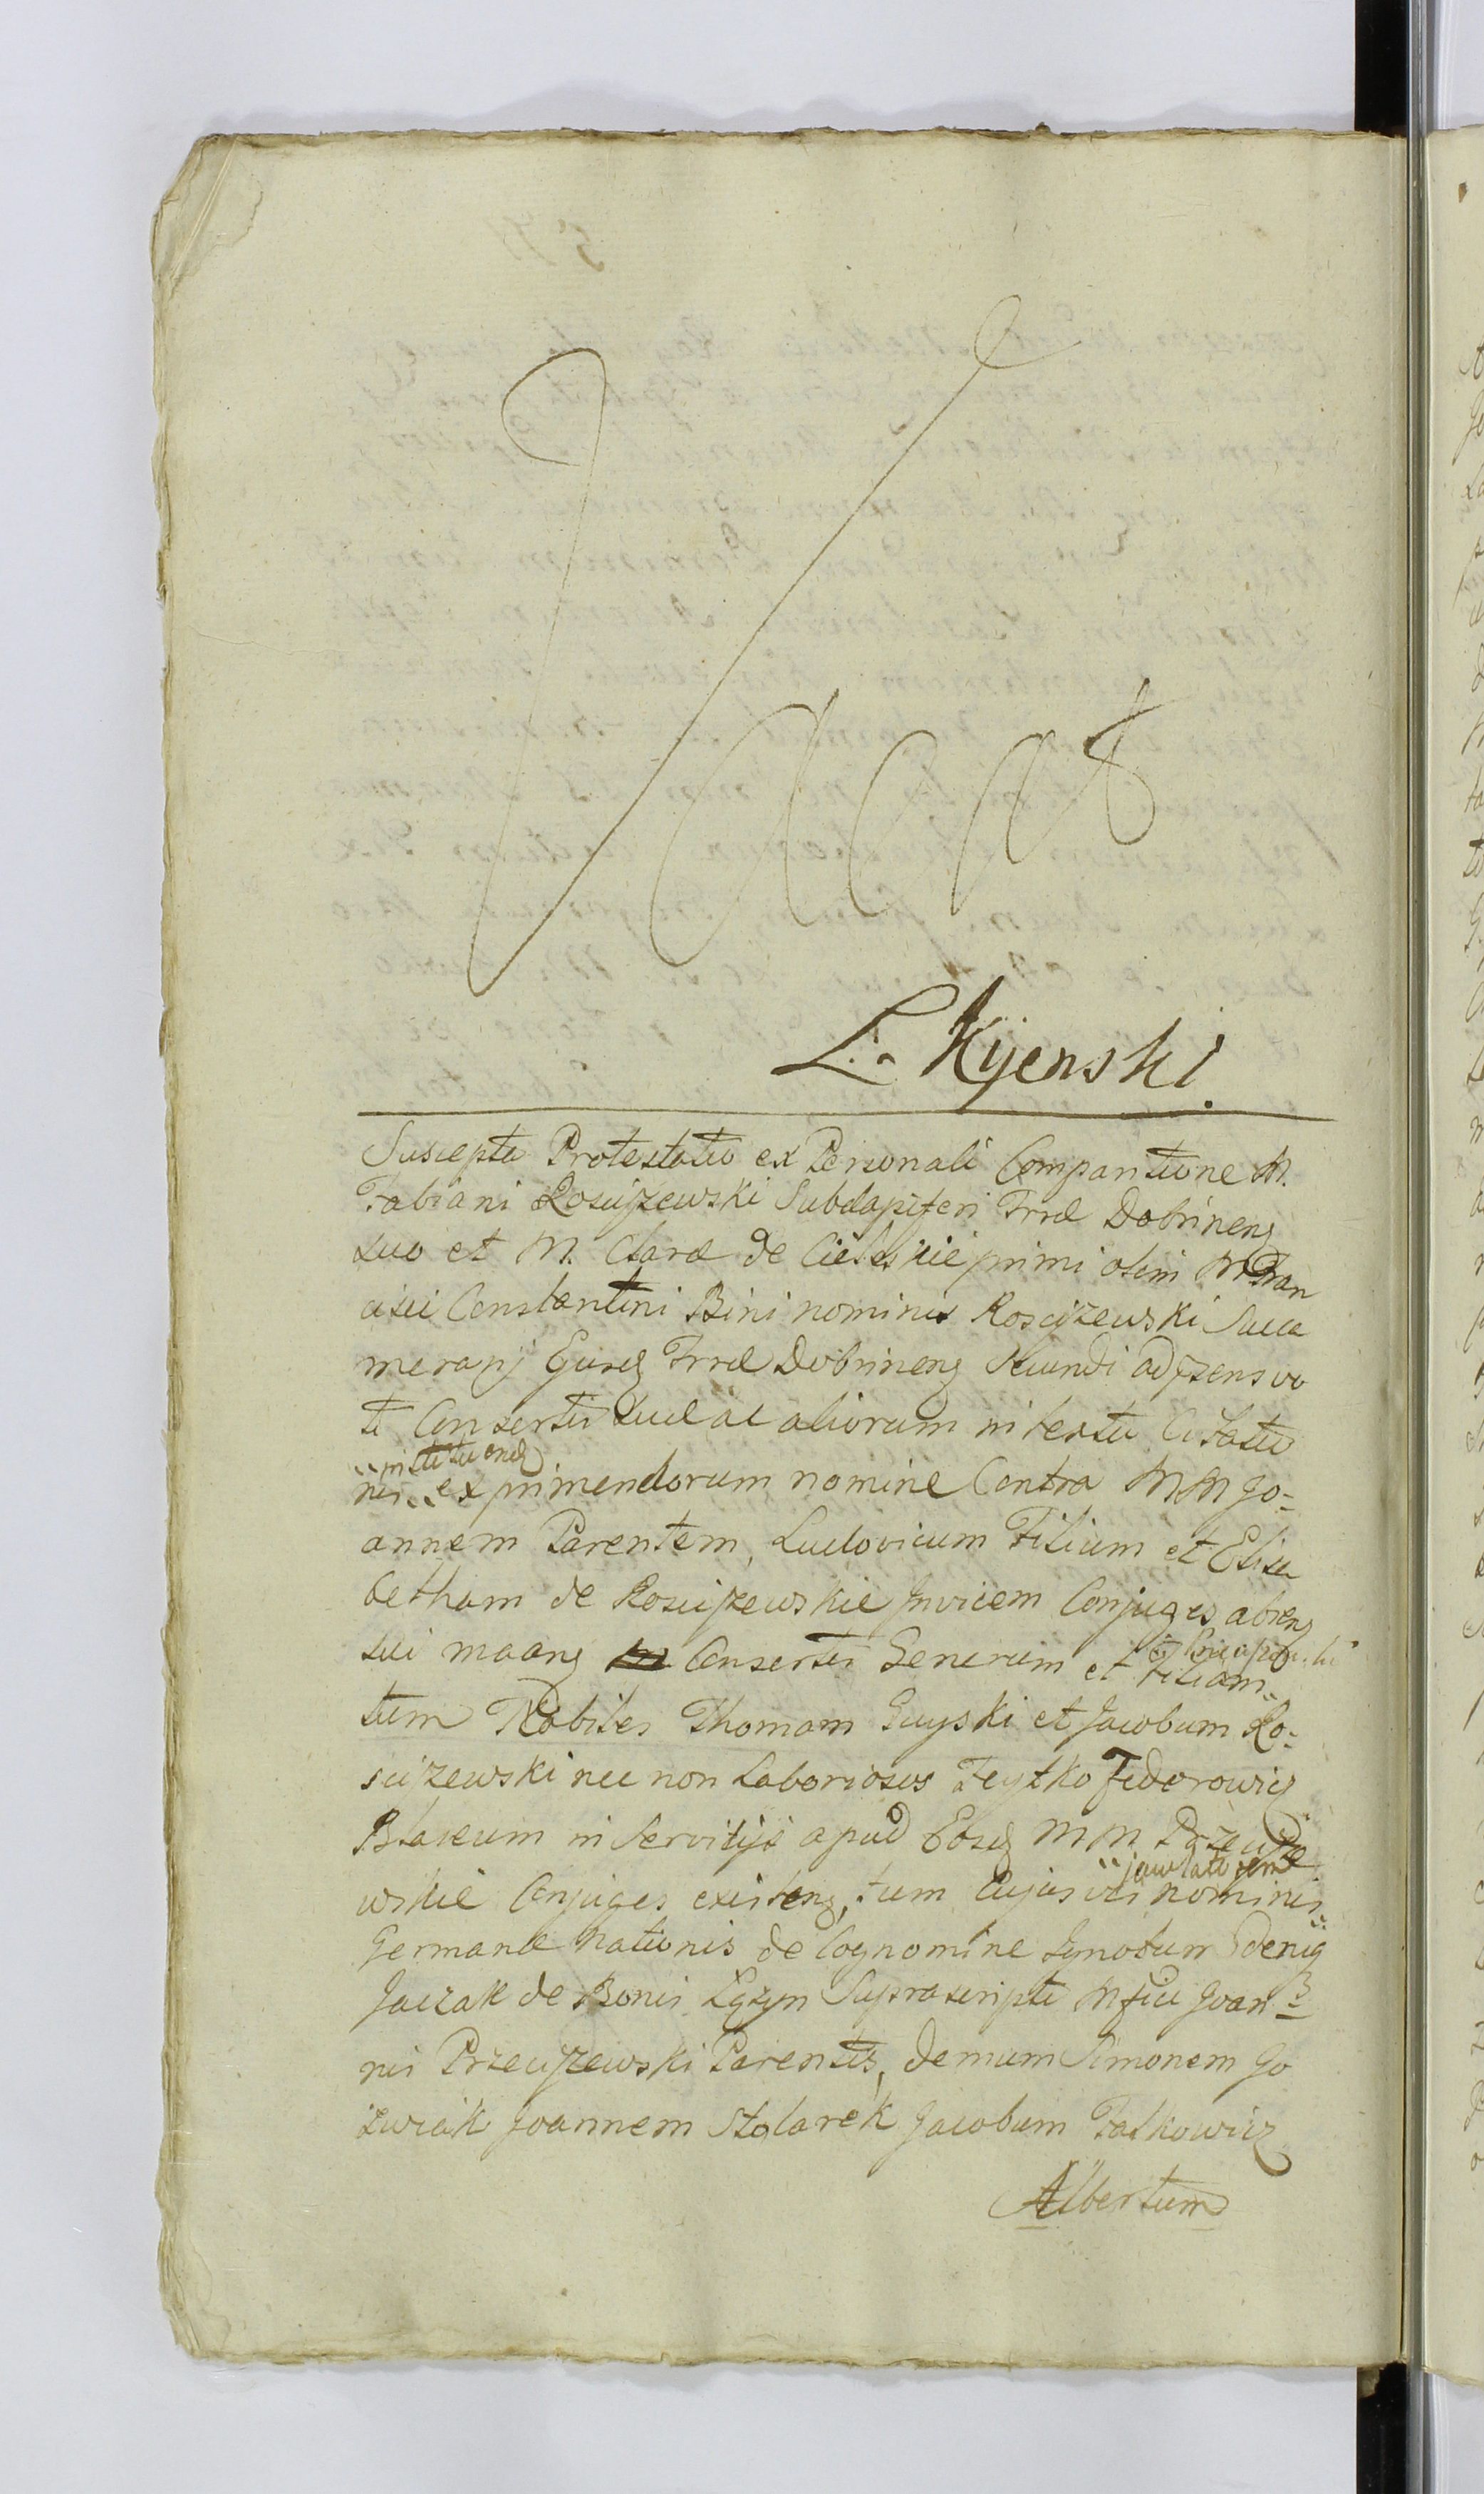 Vacat
L. Kijenski
Suscepta Protestatio ex Personali Comparitione M.
Fabiani Rosciszewski Subdapiferi Trrae Dobrinens
suo et M. Clarae de Cielskie primi olim M Fran
cisci Constantini Bini nominis Rosciszewski Succa
merarij Ejusq Trrae Dobrinens Secundi ad psens vo
ti Consortis suae ac aliorum in textu Citatio
nis exprimendorum nomine Contra MM Jo=
instituend
annem Parentem, Ludovicum Filium et Elisa
betham de Rosciszewskie Invicem Conjuges absens
sui Consortis Generum et Filiam
tum Nobiles Thomam Guyski et Jacobum Ro=
sciszewski nec non Laboriosos Feytko Federowicz
Blasium in Servitijs apud Eosq MM Przecisze
wskie Conjuges existens, tum Cujusvis nominis
Germanae nationis de Cognomine Ignotum
Jaczak de Bonis Łążyn Suprascripti Mfici Joan=
nis Przeciszewski Parentis, demum Simonem Go
zwiak Joannem Stolarek Jacobum Fatkowicz
Albertum